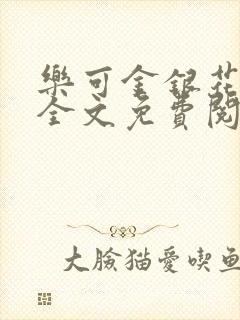 樂可金銀花
全文免費閱
大臉猫愛喫鱼